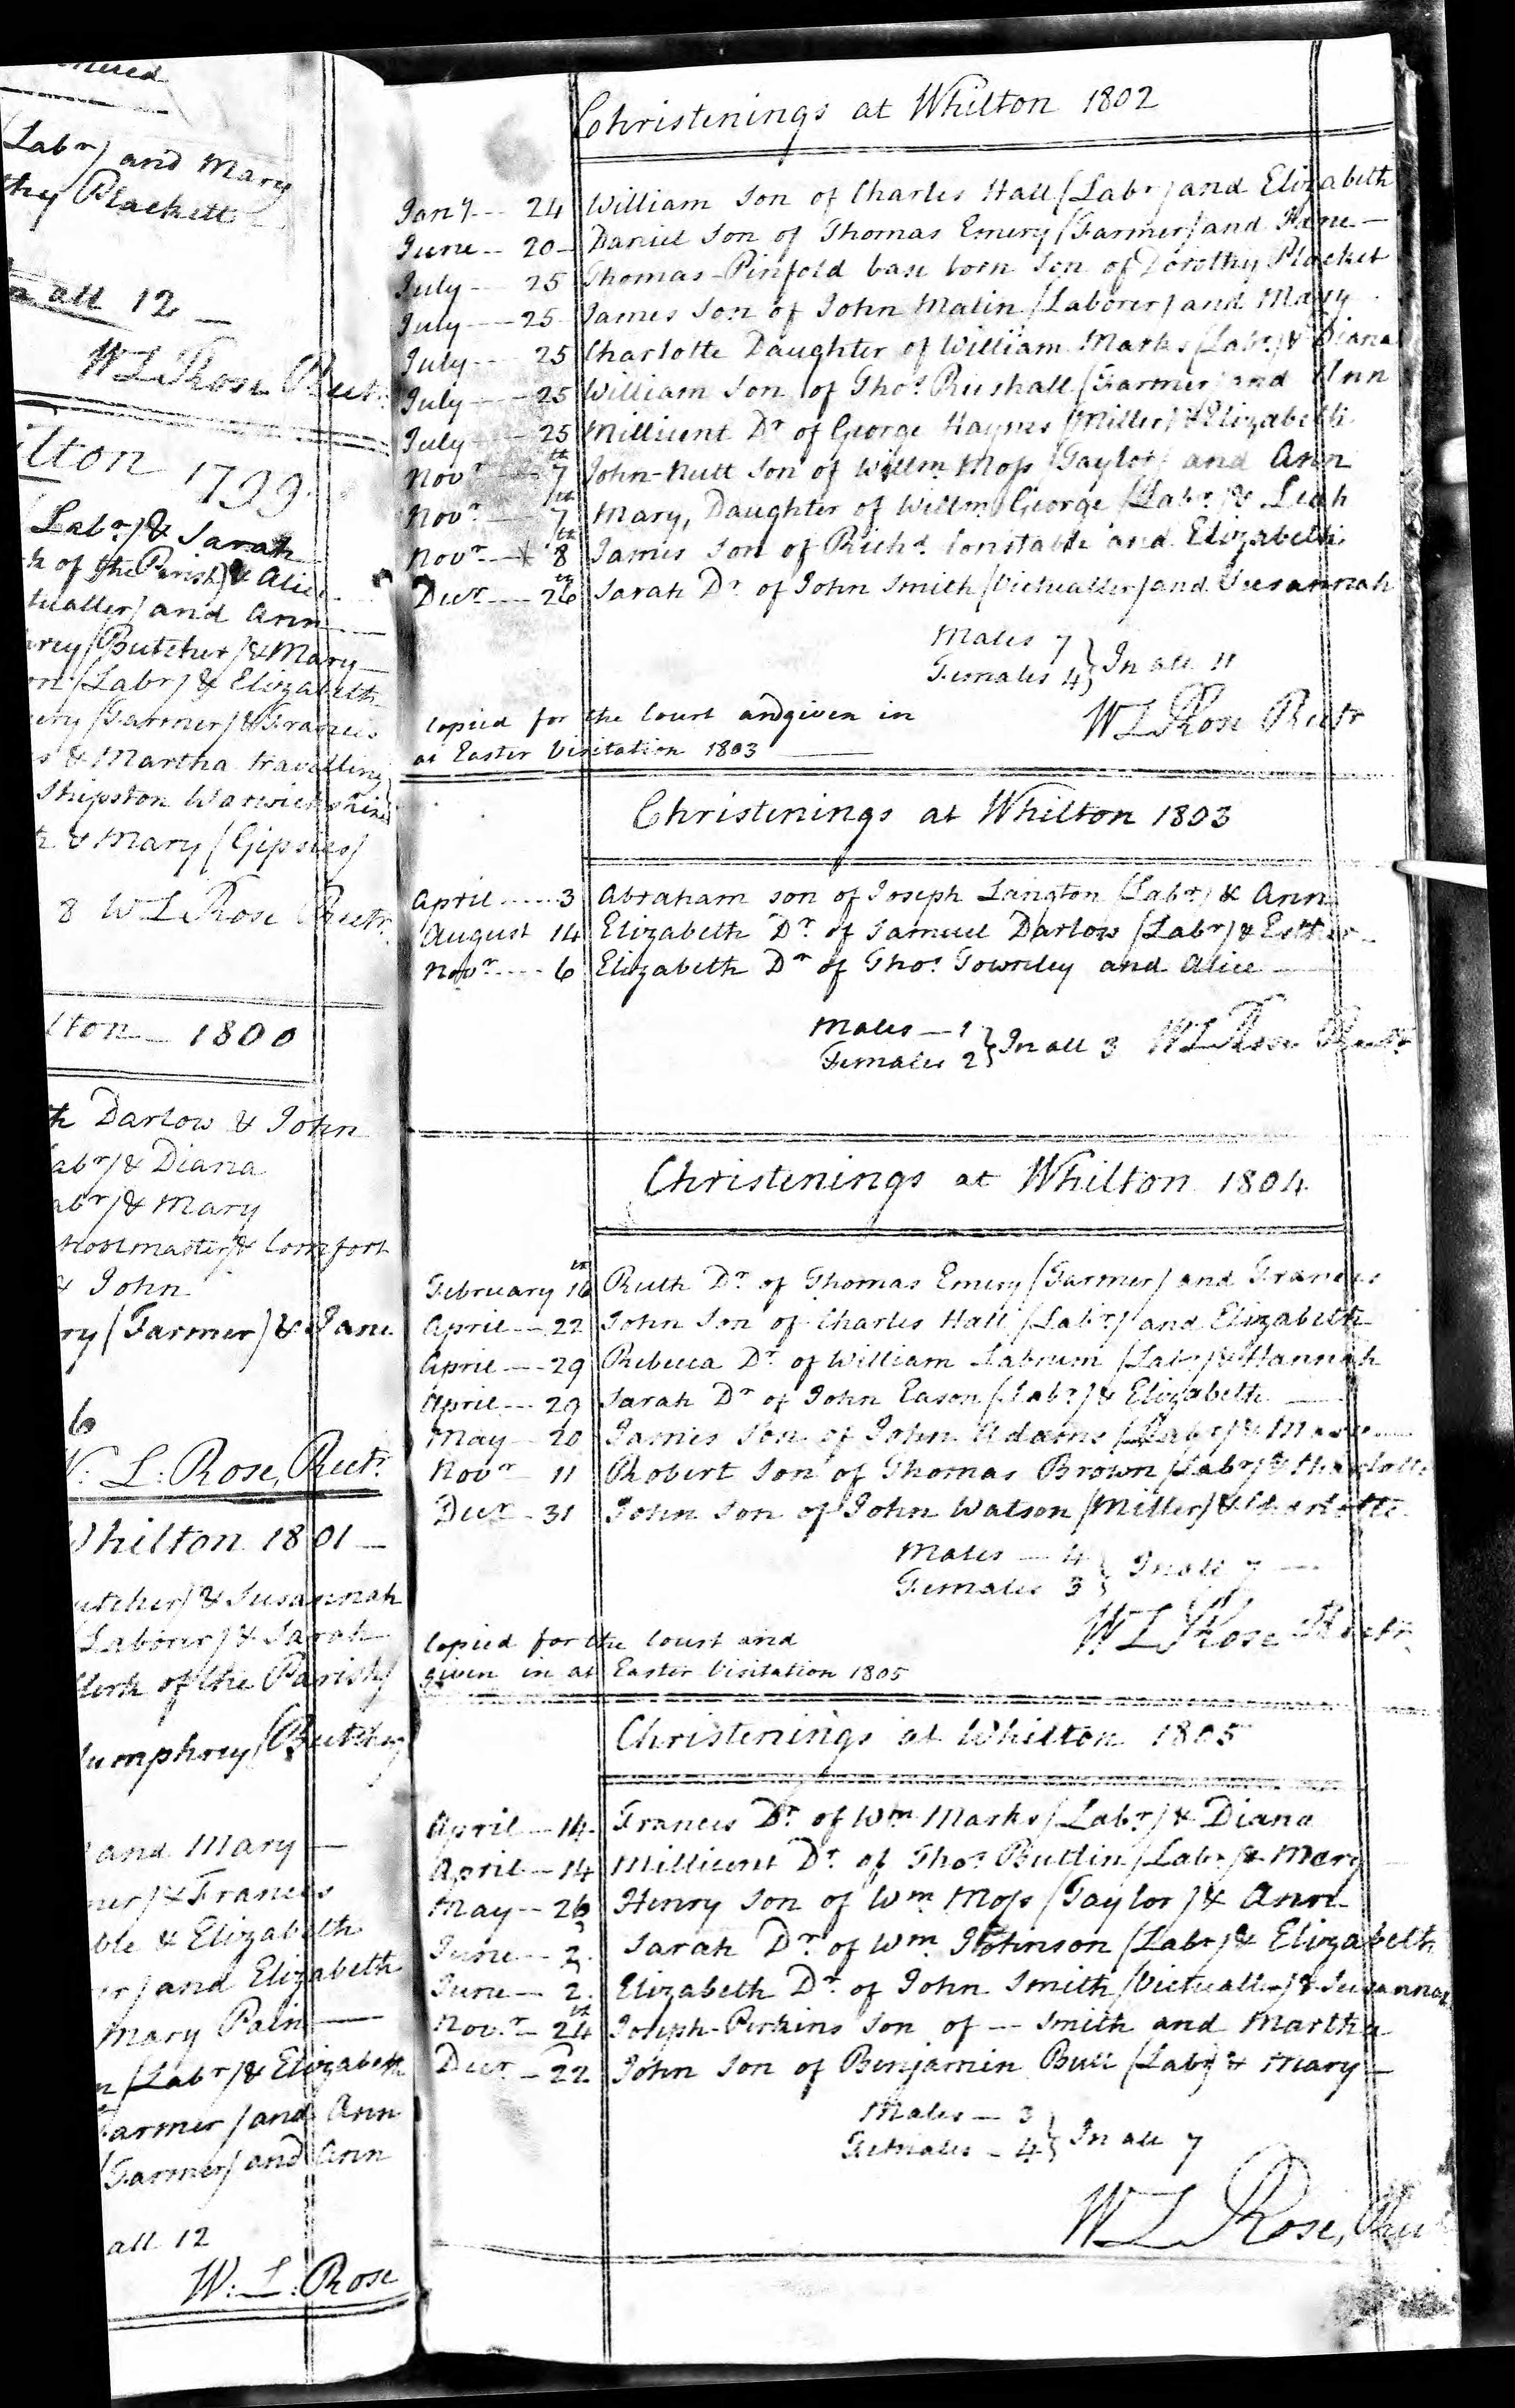 (Labr) and Mary
Plackett
all 12 —
W L Rose Rectr
ilton 1799
Labr) & Sarah
k of the Parish) & Alice
tualler) and Ann
rey (Butcher) & Mary
(Labr) & Elizabeth
ery (Farmer) & Frances
s & Martha travelling
Shipston Warwickshire
& Mary (Gipsies)
8 W L Rose Rectr
lton — 1800
h Darlow & John
abr) & Diana
abr) & Mary
hoolmaster) & Comfort
& John
ry (Farmer) & Jane
6
W. L: Rose, Rectr
Whilton 1801 —
utcher) & Susannah
Laborer) & Sarah
lerk of the Parish)
umphrey (Butcher)
and Mary —
mer) & Frances
ble & Elizabeth
er) and Elizabeth
Mary Pain —
n (Labr) & Elizabeth
Farmer) and Ann
(Farmer) and Ann
all 12
W: L: Rose
Christenings at Whilton 1802
Jany -- 24 William Son of Charles Hall (Labr) and Elizabeth
June -- 20 - Daniel Son of Thomas Emery (Farmer) and Jane —
July -- 25 Thomas-Pinfold base born Son of Dorothy Placket
July --- 25 James Son of John Matin (Laborer) and Mary
July --- 25 Charlotte Daughter of William Marks (Labr) & Diana
July --- 25 William Son of Thos Rushall (Farmer) and Ann
July --- 25 Millicent Dr of George Haynes (Miller) & Elizabeth
Novr --- 7th John-Nutt Son of Willm Moss (Taylor) and Ann
Novr --- 7th Mary, Daughter of Willm George (Labr) & Leah
Novr --- 8th James Son of Richd Constable and Elizabeth
Decr --- 26th Sarah Dr of John Smith (Victualler) and Susannah
Males 7
Females 4 } In all 11
Copied for the Court and given in
at Easter Visitation 1803 —
W L Rose Rectr
Christenings at Whilton 1803
April ---- 3 Abraham son of Joseph Langton (Labr) & Ann
August 14 Elizabeth Dr of Samuel Darlow (Labr) & Esther
Novr ---- 6 Elizabeth Dr of Thos Townley and Alice —
Males — 1
Females 2 } In all 3 W L Rose Rectr
Christenings at Whilton 1804
February 16th Ruth Dr of Thomas Emery (Farmer) and Frances
April -- 22 John Son of Charles Hall (Labr) and Elizabeth
April -- 29 Rebecca Dr of William Labrum (Labr) & Hannah
April -- 29 Sarah Dr of John Eason (Labr) & Elizabeth —
May -- 20 James Son of John Adams (Labr) &
Novr - 11 Robert Son of Thomas Brown (Labr) & Charlotte
Decr - 31 John Son of John Watson (Miller) & Charlotte
Males — 4
Females 3 } In all 7 —
W L Rose Rectr
Copied for the Court and
given in at Easter Visitation 1805
Christenings at Whilton 1805
April -- 14 - Frances Dr of Wm Marks (Labr) & Diana
April -- 14 Millicent Dr of Thos Butlin (Labr) & Mary
May -- 26 Henry Son of Wm Moss (Taylor) & Ann
June -- 2 - Sarah Dr of Wm Johnson (Labr) & Elizabeth
June -- 2 - Elizabeth Dr of John Smith (Victualler) & Susannah
Novr - 24th Joseph-Perkins Son of -- Smith and Martha
Decr - 22 John Son of Benjamin Bull (Labr) & Mary —
Males — 3
Females - 4 } In all 7
W L Rose,